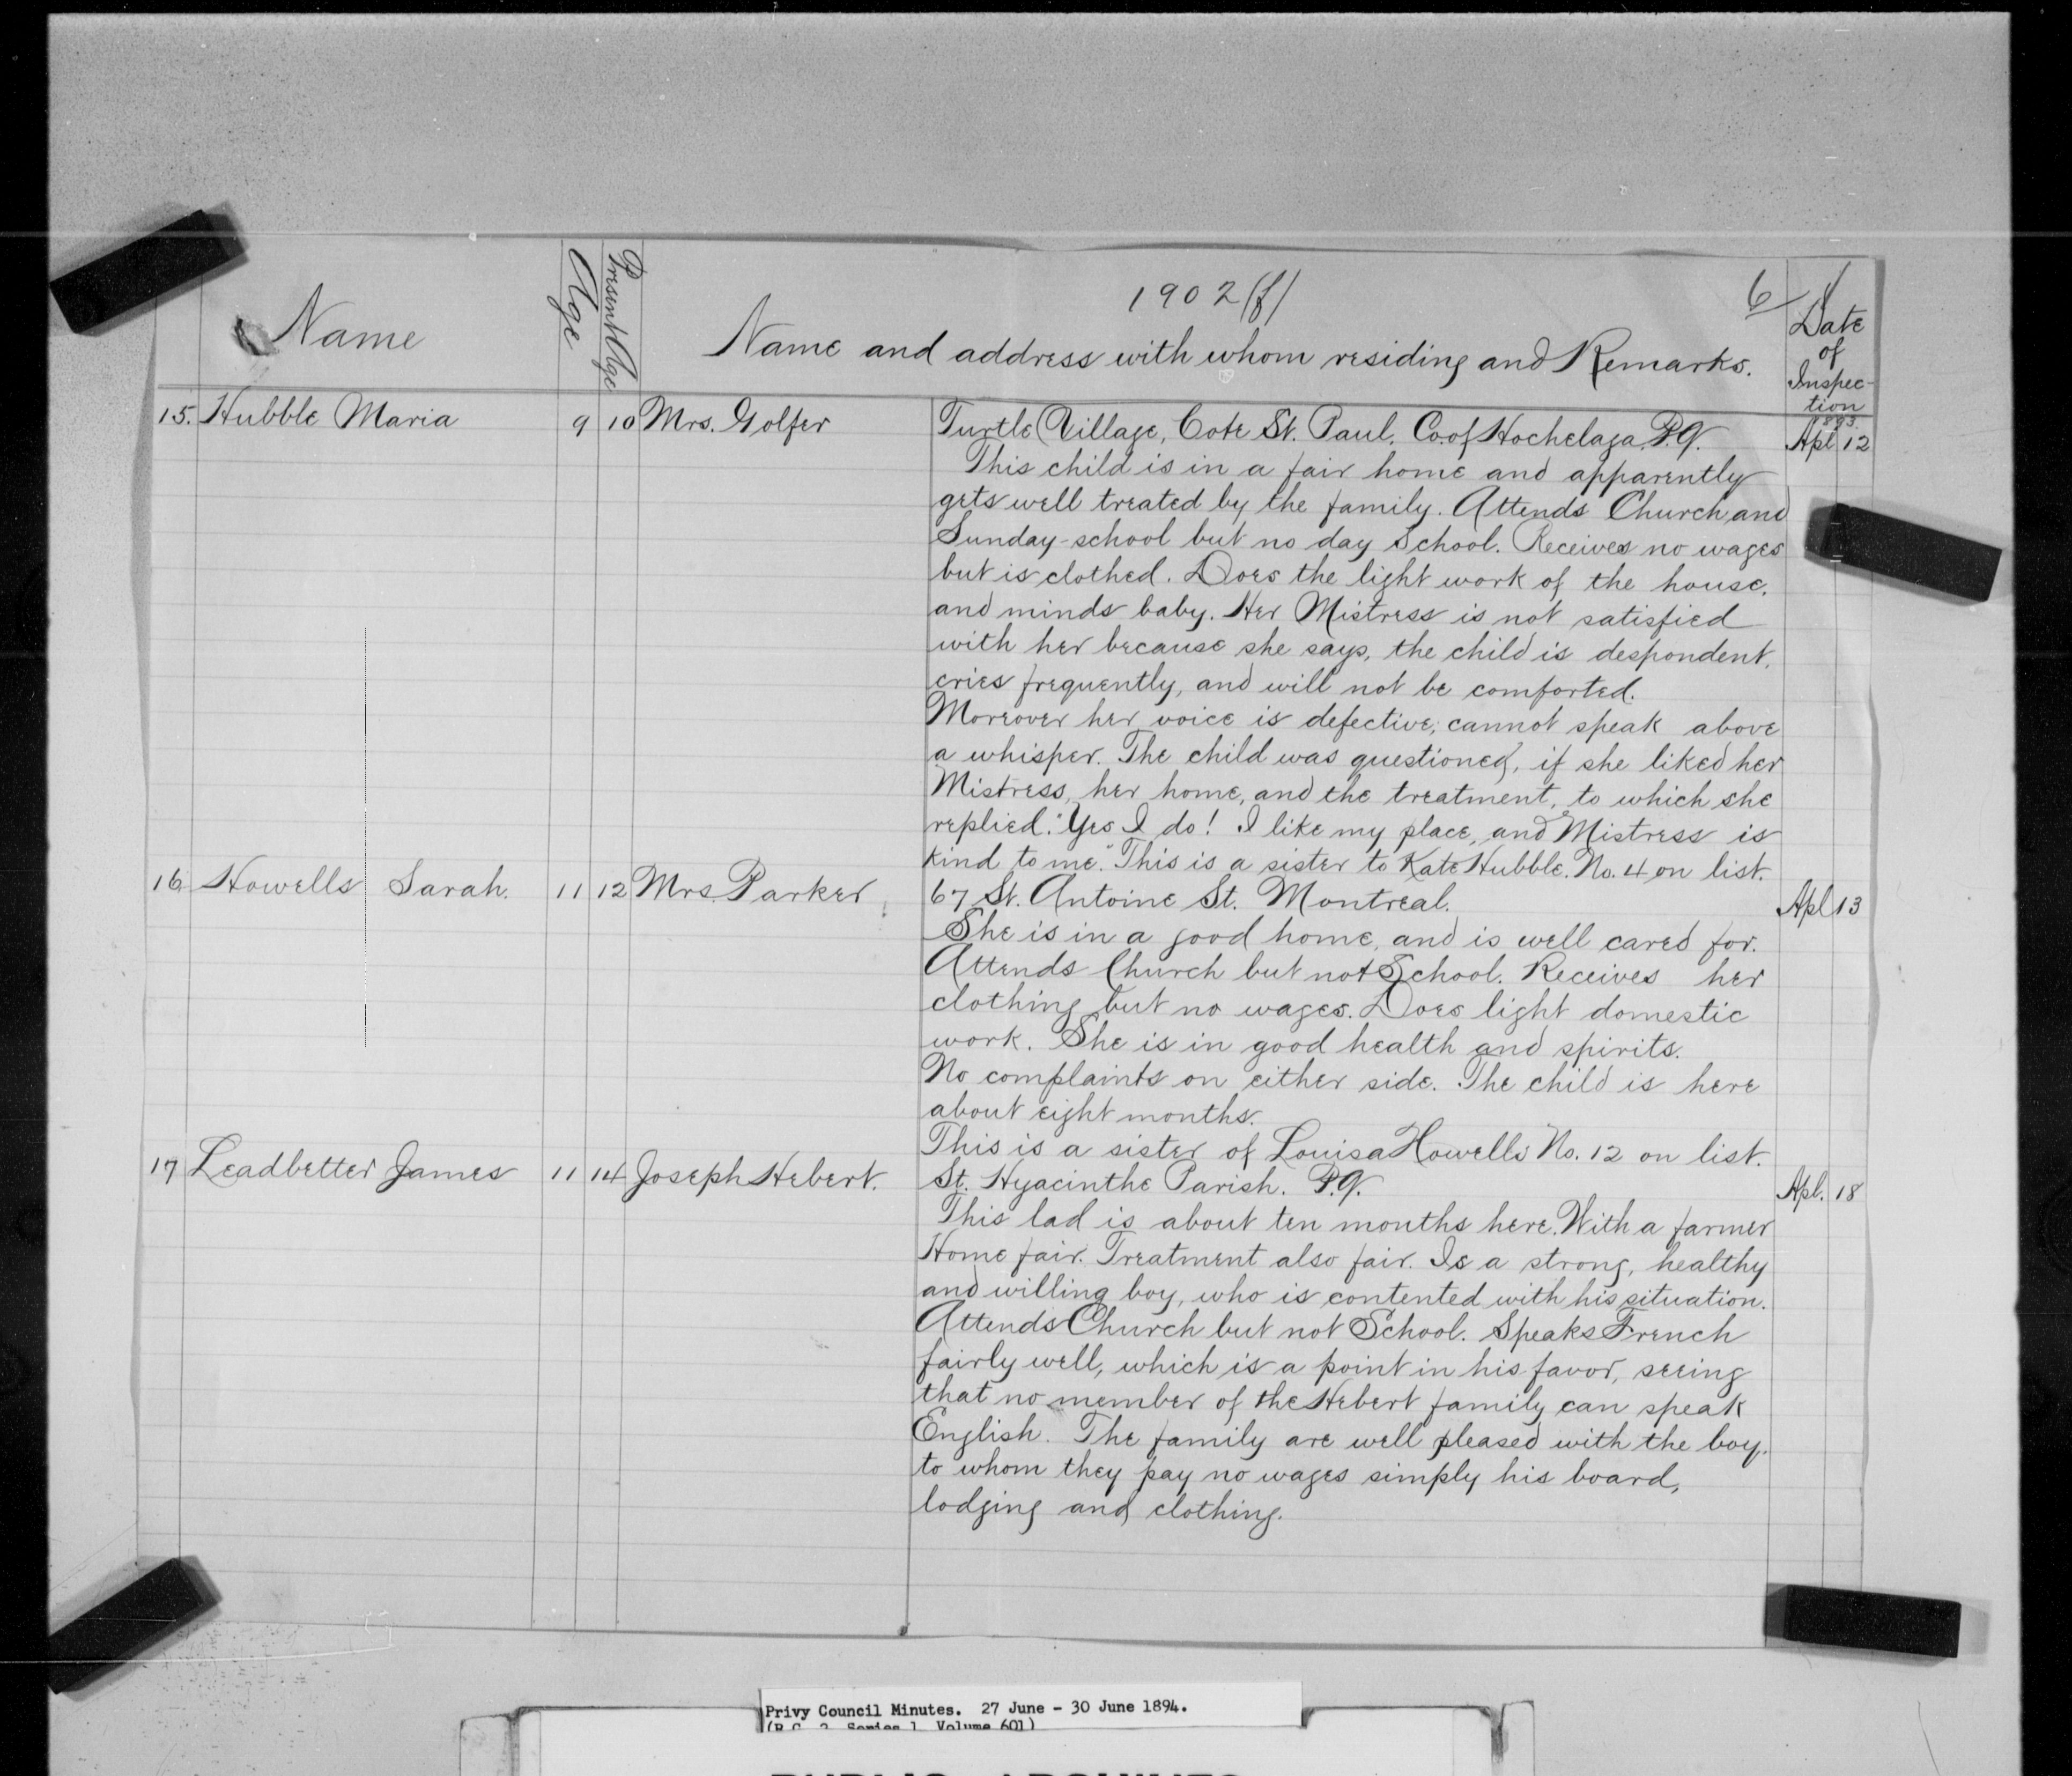 1902(f)
6
Name
Age
Present Age
Name and address with whom residing and Remarks.
Date
of
Inspec-
tion
1893.
15. Hubble Maria 9 10 Mrs. Golfer Turtle Village, Cote St. Paul, Co. of Hochelaga P.Q. Apl 12
This child is in a fair home and apparently
gets well treated by the family. Attends Church and
Sunday-school but no day School. Receives no wages
but is clothed. Does the light work of the house,
and minds baby. Her Mistress is not satisfied
with her because she says, the child is despondent,
cries frequently, and will not be comforted.
Moreover her voice is defective; cannot speak above
a whisper. The child was questioned, if she liked her
Mistress, her home, and the treatment, to which she
replied. "Yes I do! I like my place, and Mistress is
kind to me." This is a sister to Kate Hubble. No. 4 on list.
16 Howells Sarah. 11 12 Mrs. Parker 67 St. Antoine St. Montreal. Apl 13
She is in a good home, and is well cared for.
Attends Church but not School. Receives her
clothing but no wages. Does light domestic
work. She is in good health and spirits.
No complaints on either side. The child is here
about eight months.
This is a sister of Louisa Howells No. 12 on list.
17 Leadbetter James 11 14 Joseph Hebert. St. Hyacinthe Parish. P.Q. Apl. 18
This lad is about ten months here. With a farmer
Home fair. Treatment also fair. Is a strong, healthy
and willing boy, who is contented with his situation.
Attends Church but not School. Speaks French
fairly well, which is a point in his favor, seeing
that no member of the Hebert family can speak
English. The family are well pleased with the boy,
to whom they pay no wages simply his board,
lodging and clothing.
Privy Council Minutes. 27 June - 30 June 1894.
(R.G. 2, Series 1, Volume 601)
PUBLIC ARCHIVES